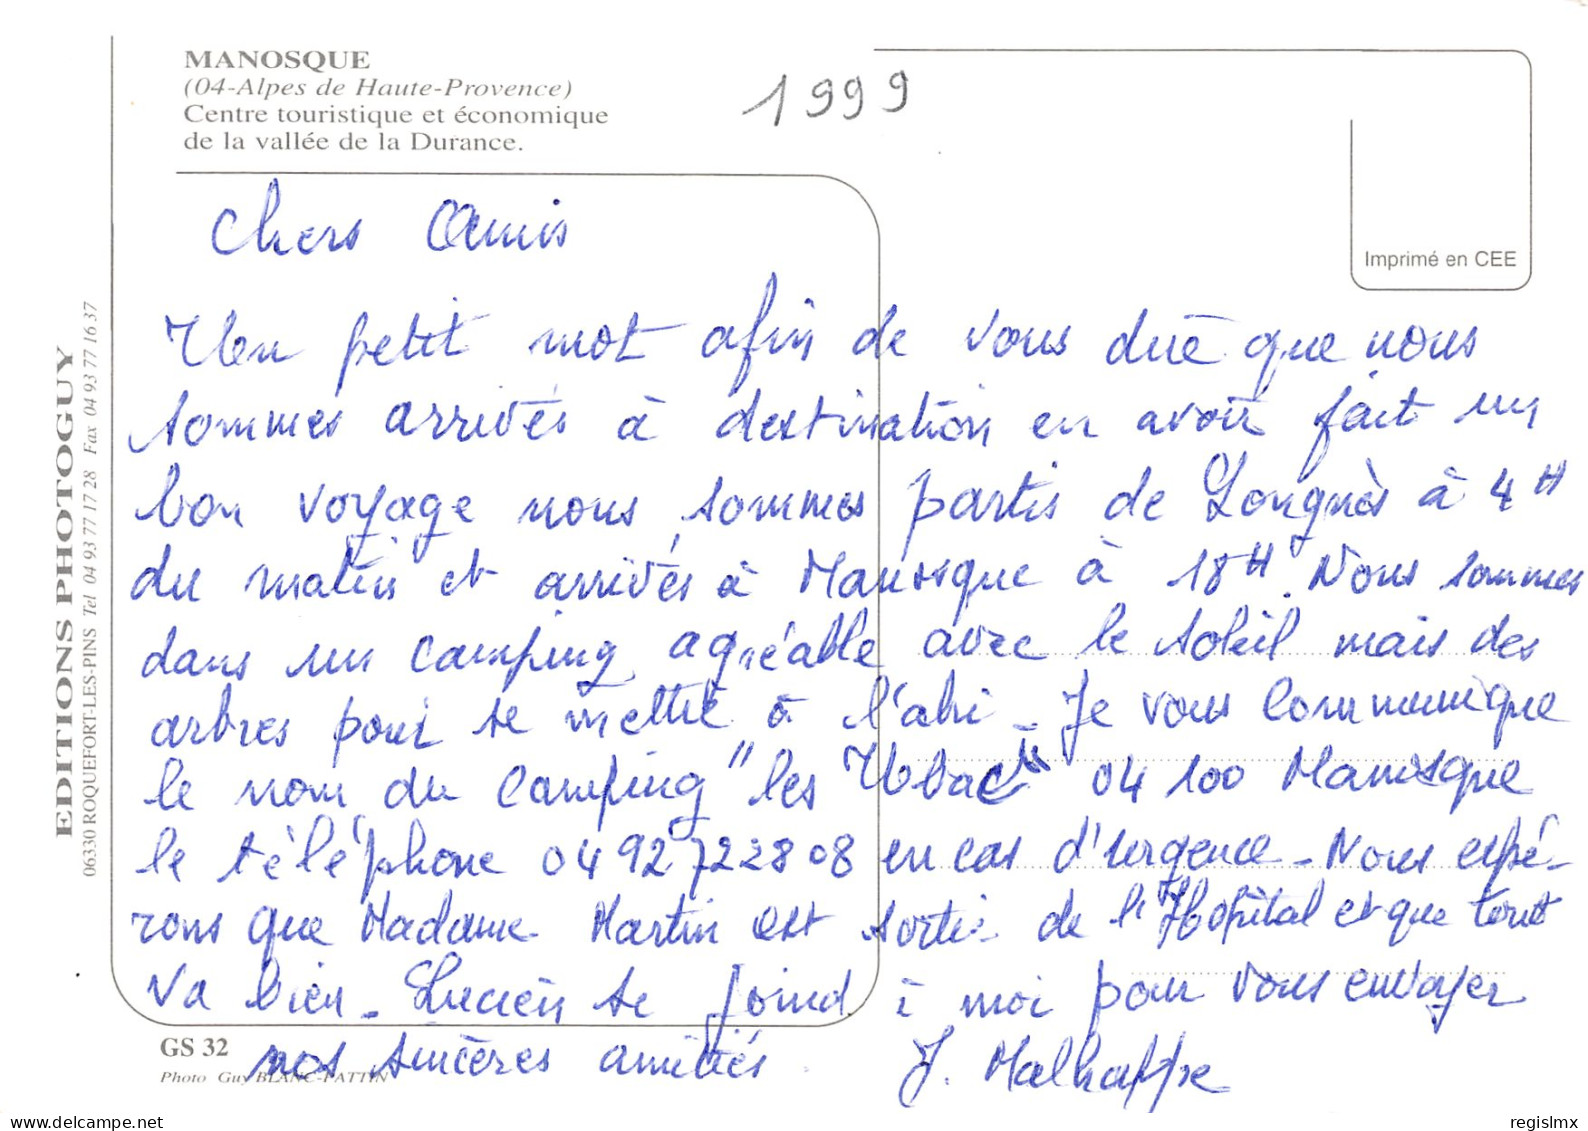 MANOSQUE
(04-Alpes de Haute-Provence)
Centre touristique et économique
de la vallée de la Durance.
1999
Imprimé en CEE
EDITIONS PHOTOGUY
06330 ROQUEFORT-LES-PINS Tel 04 93 77 17 28 Fax 04 93 77 16 37
Chers Amis
Un petit mot afin de vous dire que nous
sommes arrivés à destination en avoir fait un
bon voyage nous sommes partis de Longnès à 4H
du matin et arrivés à Manosque à 18H. Nous sommes
dans un camping agréable avec le soleil mais des
arbres pour se mettre à l'abri - Je vous communique
le nom du camping "les Ubacs" 04 100 Manosque
le téléphone 04 92 72 28 08 en cas d'urgence - Nous espé-
rons que Madame Martin est sortie de l'Hôpital et que tout
va bien - Lucien se joind à moi pour vous envoyer
nos sincères amitiés. J. Malhappe
GS 32
Photo Guy BLANC-PATTIN
regislmx